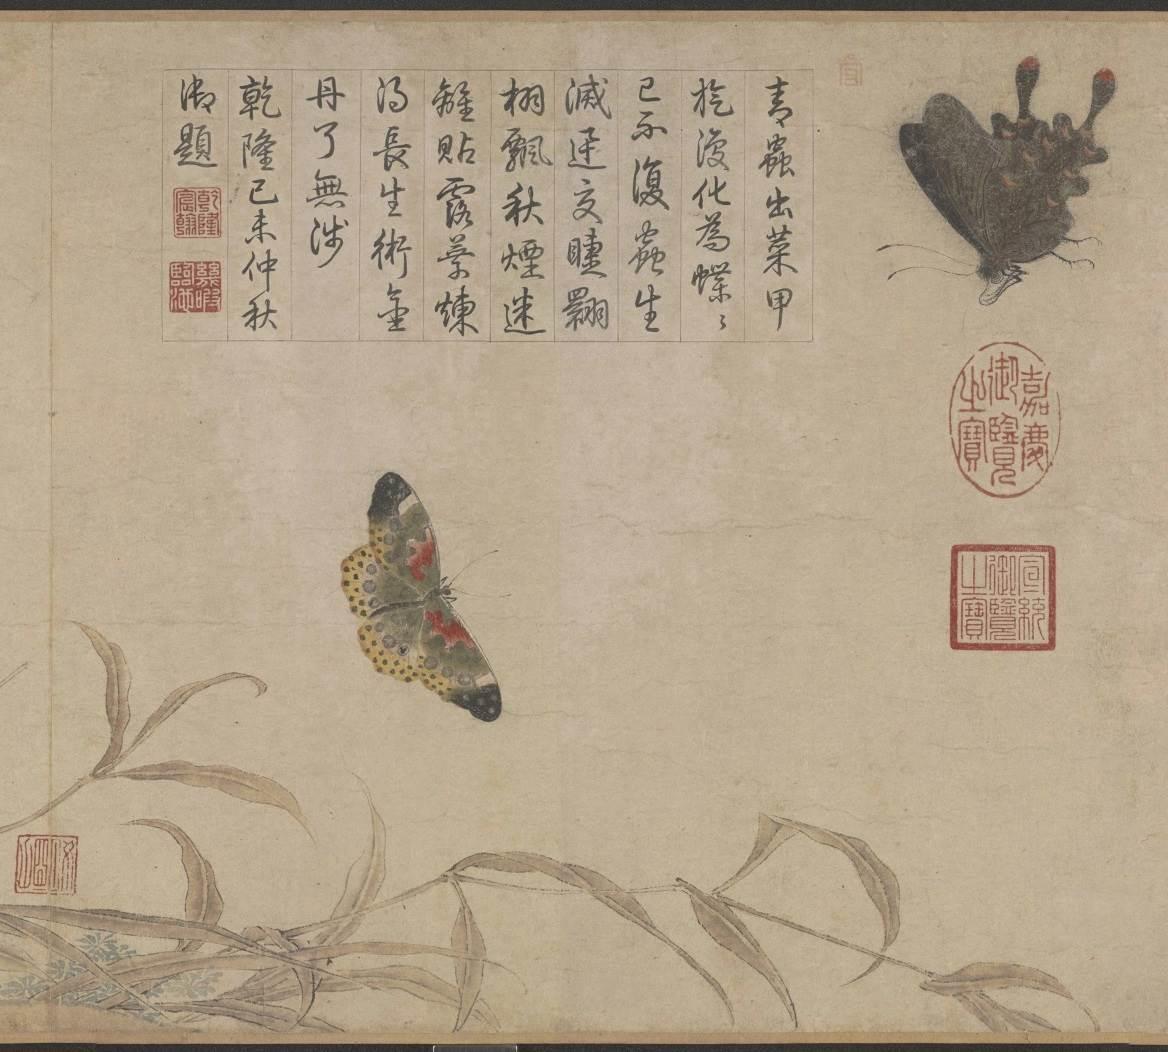 嘉慶御覽之寶
宣統御覽之寶
青蟲出菜甲
旋復化為蝶々
已不復蟲生
滅交睫翾
栩飄秋煙迷
離貼露葉煉
得長生術金
丹了無涉
乾隆己未仲秋
御題
乾隆宸翰
幾暇臨池